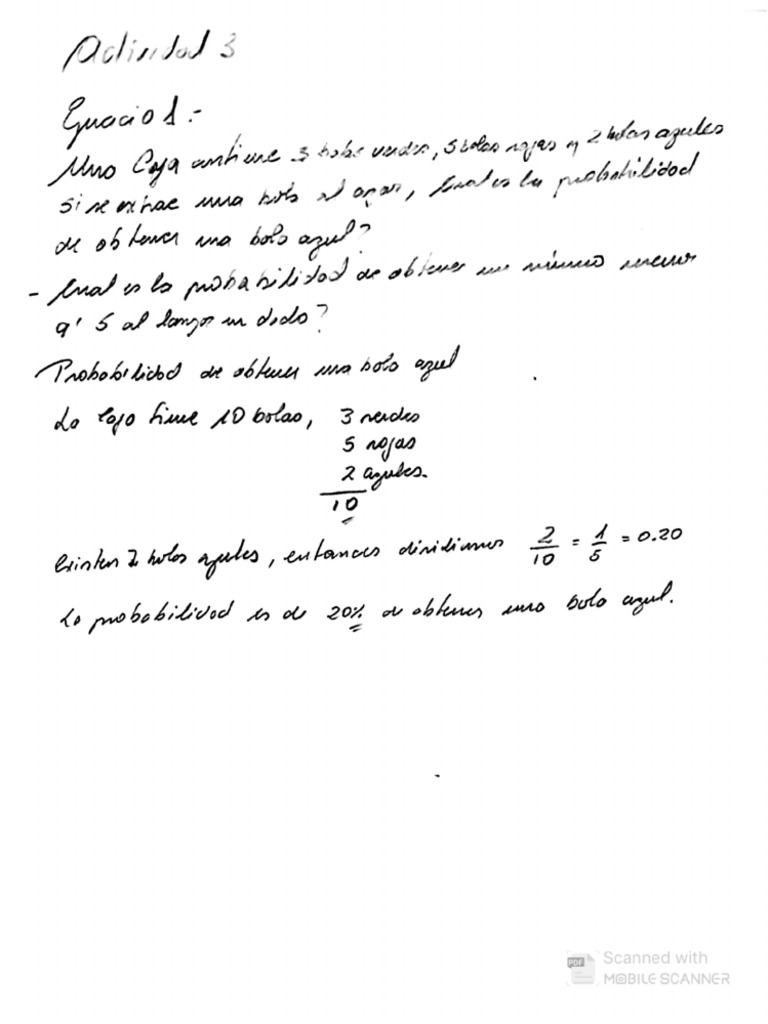 Actividad 3
Ejercicio 1.-
Una Caja contiene 3 bolas verdes, 5 bolas rojas y 2 bolas azules
si se extrae una bola al azar, Cual es la probabilidad
de obtener una bola azul?
- Cual es la probabilidad de obtener un número menor
q' 5 al lanzar un dado?
Probabilidad de obtener una bola azul
La caja tiene 10 bolas, 3 verdes
5 rojas
2 azules.
10
Existen 2 bolas azules, entonces dividimos 2/10 = 1/5 = 0.20
La probabilidad es de 20% de obtener una bola azul.
PDF
Scanned with
MOBILE SCANNER